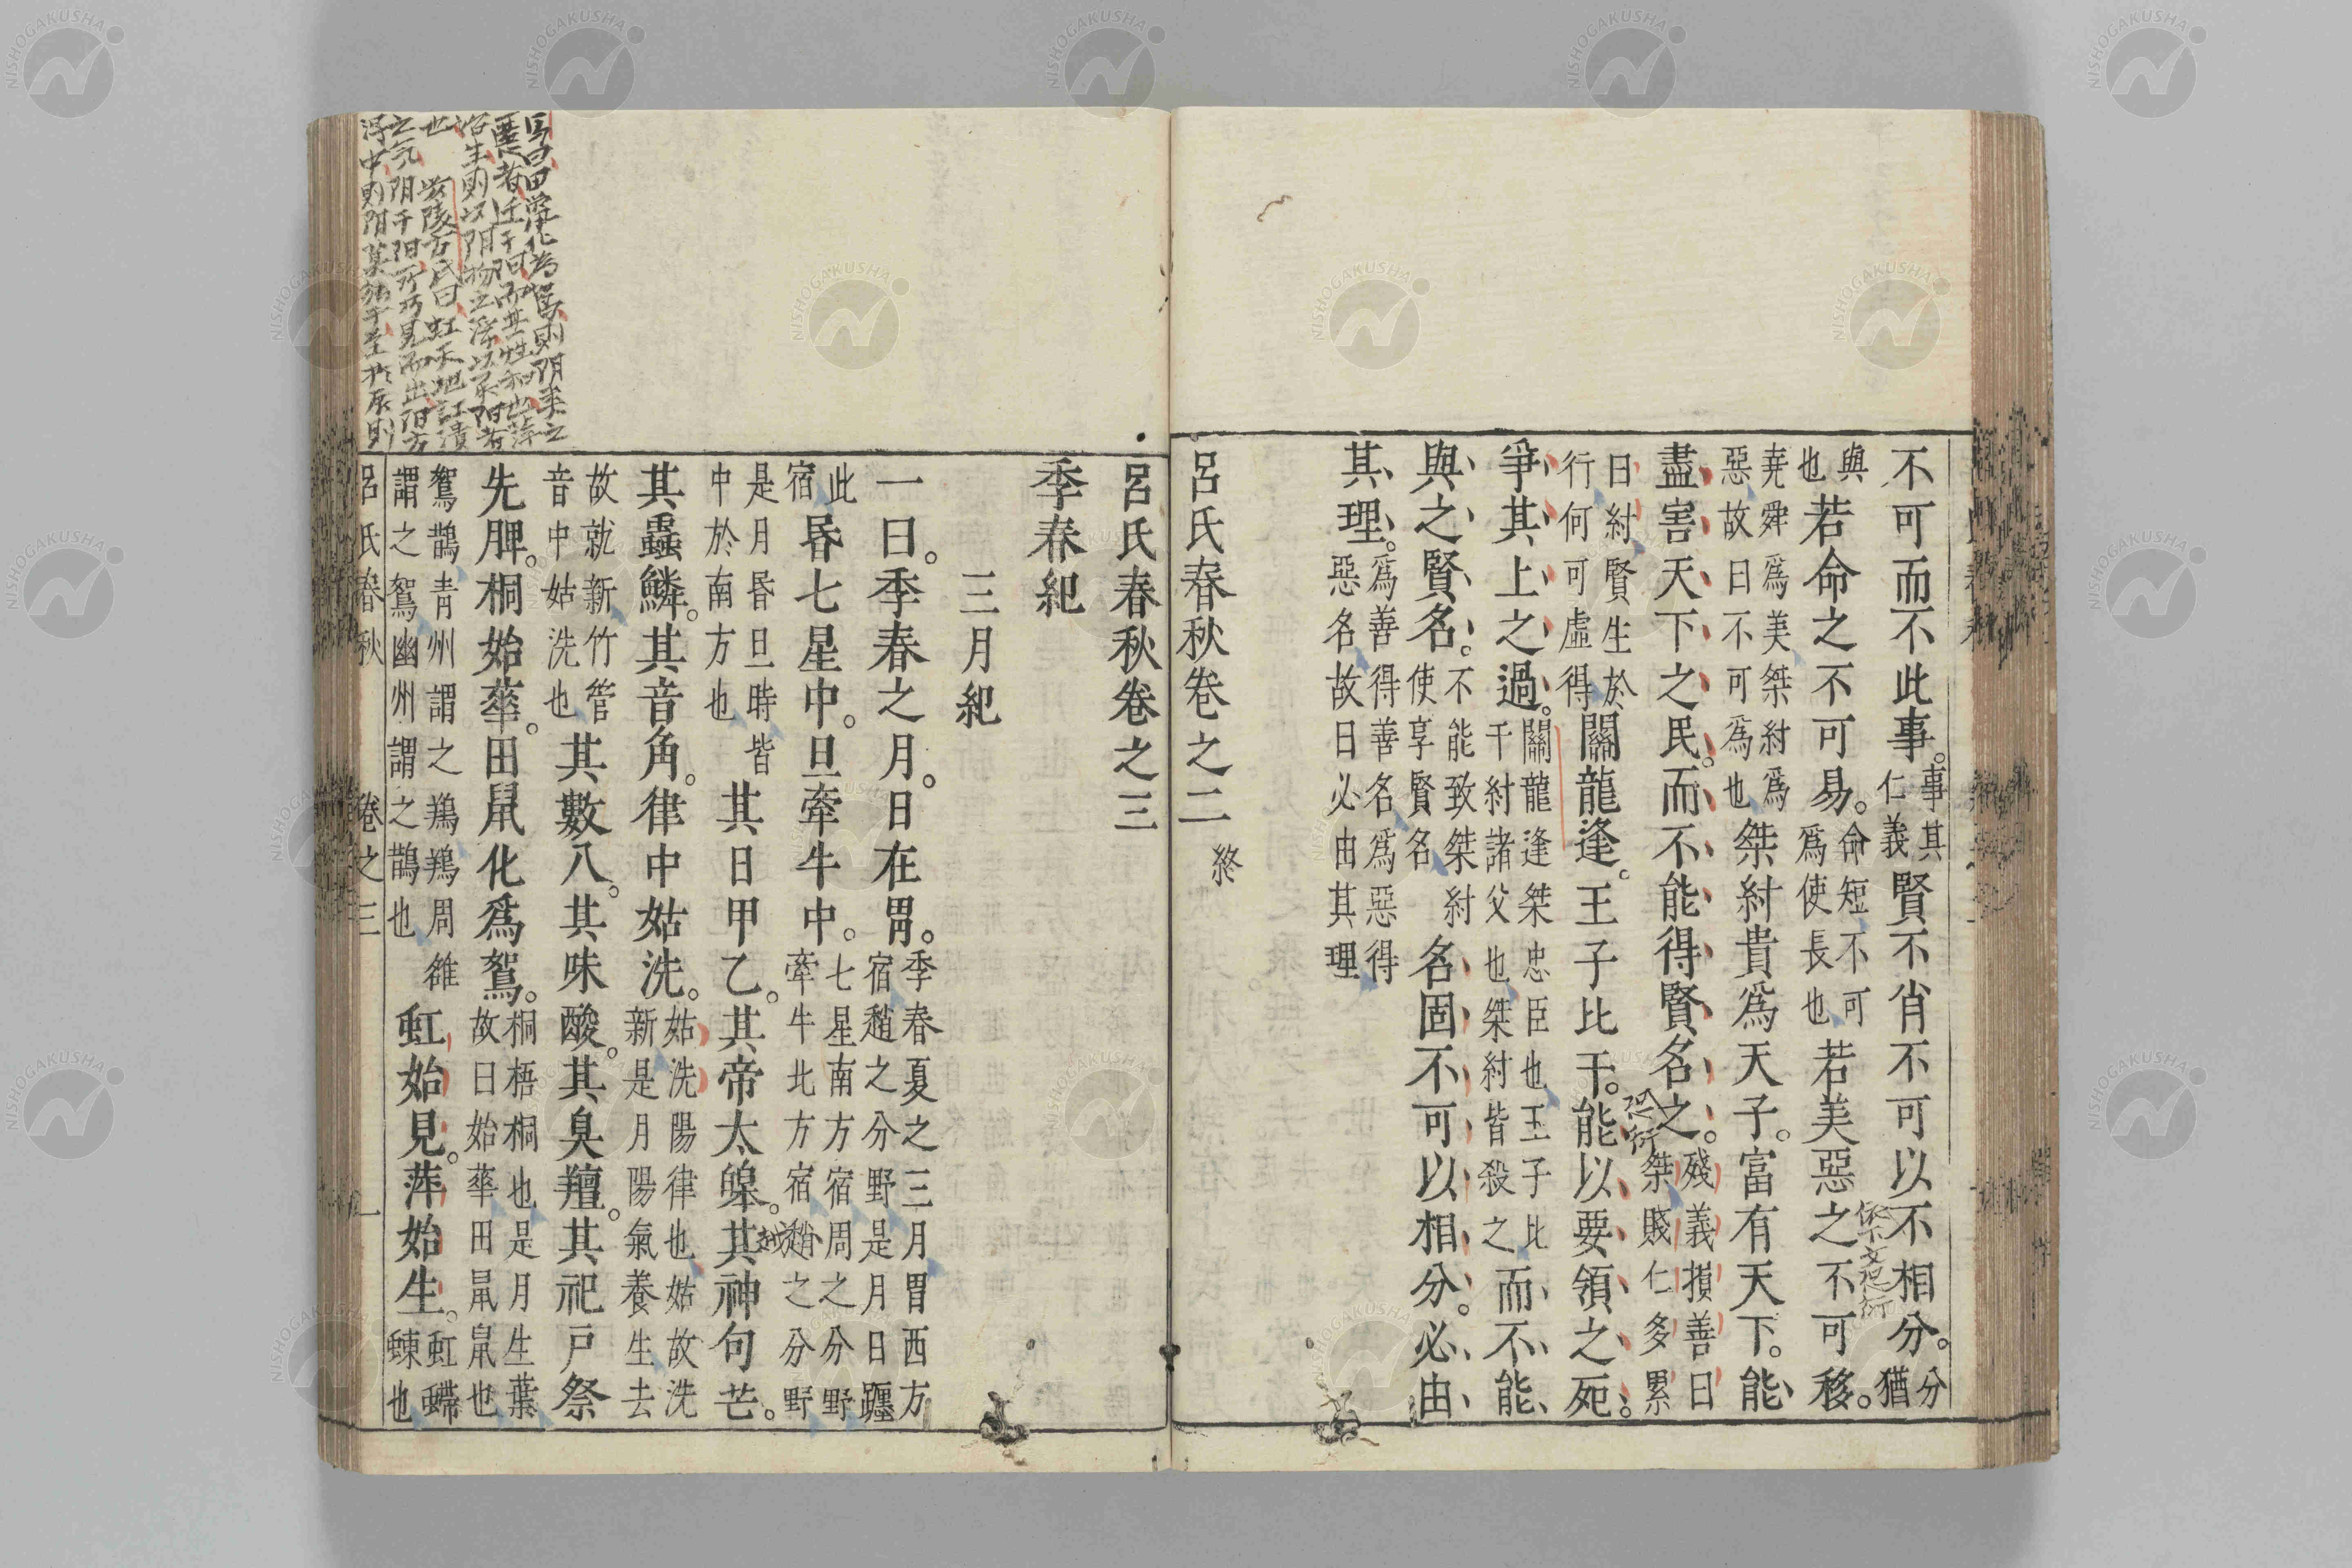 不可而不此事。事其仁義賢不肖不可以不相分。分猶
與也若命之不可易。命短不可爲使長也若美惡之不可移。
堯舜爲美桀紂爲惡故曰不可爲也桀紂貴爲天子。富有天下。能
盡害天下之民。而不能得賢名之。殘義損善曰桀賤仁多累
曰紂賢生於行何可虛得關龍逢。王子比干。能以要領之死。
爭其上之過。關龍逢桀忠臣也王子比干紂諸父也桀紂皆殺之而不能
與之賢名。不能致桀紂使享賢名名固不可以相分。必由
其理。爲善得善名爲惡得惡名故曰必由其理
呂氏春秋卷之二 終
呂氏春秋卷之三
季春紀
三月紀
一曰。季春之月。日在胃。季春夏之三月胃西方宿趙之分野是月日躔
此宿昬七星中。旦牽牛中。七星南方宿周之分野牽牛北方宿越之分野
是月昬旦時皆中於南方也其日甲乙。其帝太皞。其神句芒。
其蟲鱗。其音角。律中姑洗。姑洗陽律也姑故洗新是月陽氣養生去
故就新竹管音中姑洗也其數八。其味酸。其臭羶。其祀戸祭
先脾。桐始華。田鼠化爲鴽。桐梧桐也是月生葉故曰始華田鼠鼠也
鴽鶕青州謂之鴾鴾周雒謂之鴽幽州謂之鶕也虹始見。萍始生。虹螮蝀也
呂氏春秋 卷之三 一